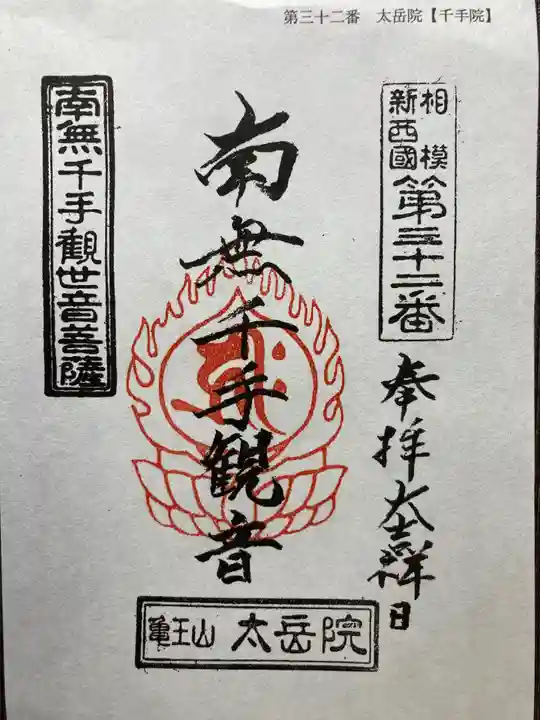 第三十二番　太岳院【千手院】
相模
新西國
第三十二番
奉拝
大吉祥日
南無千手観音
南無千手觀世音菩薩
亀王山 太岳院